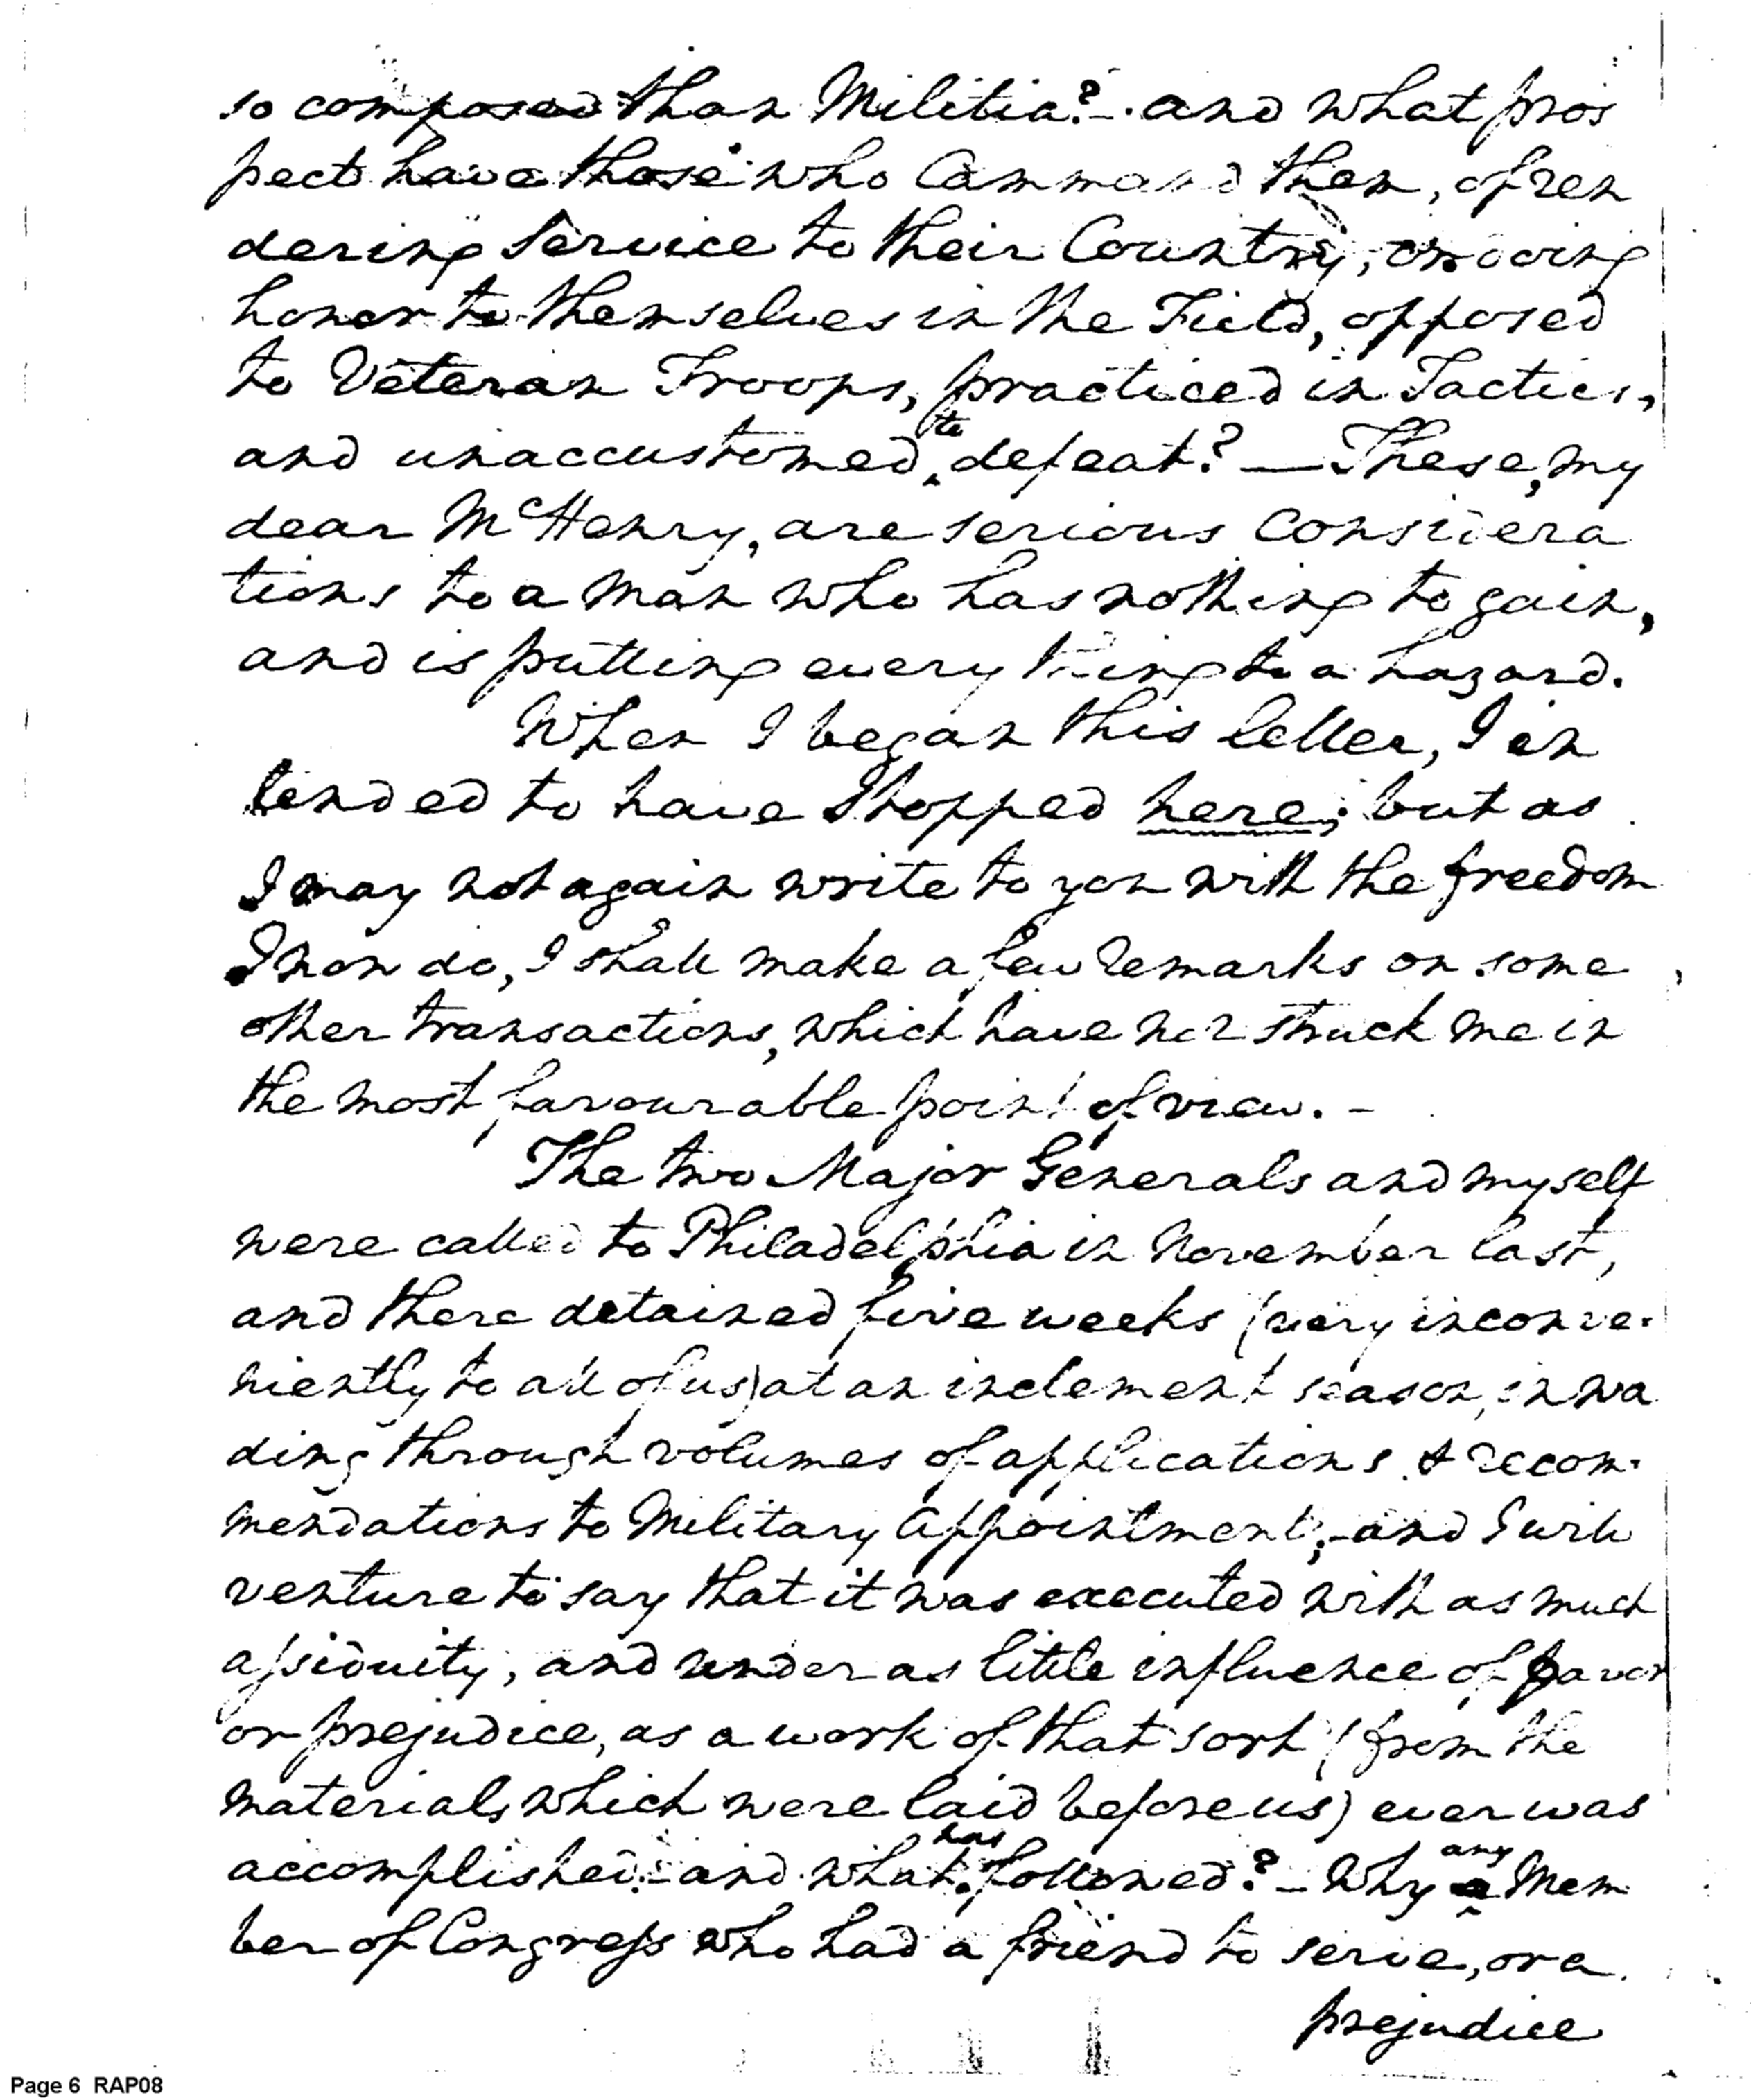 so composed than Militia?-. and what pros
pect have those who Command them, of ren
dering Service to their Country, or doing
honor to themselves in the Field, opposed
to Veteran Troops, practiced in Tactics,
and unaccustomed to defeat? — These, my
dear McHenry, are serious considera
tions to a man who has nothing to gain,
and is putting every thing to a hazard.
When I began this letter, I in
tended to have stopped here; but as
I may not again write to you with the freedom
I now do, I shall make a few remarks on some
other transactions, which have not struck me in
the most favourable point of view. -
The two Major Generals and myself
were called to Philadelphia in November last,
and there detained five weeks (very inconve-
niently to all of us) at an inclement season, in wa
ding through volumes of applications & recom-
mendations to Military appointment; - and I will
venture to say that it was executed with as much
assiduity, and under as little influence of favor
or prejudice, as a work of that sort (from the
materials which were laid before us) ever was
accomplished: - and what has followed? - Why any Mem
ber of Congress who had a friend to serve, or a
prejudice
Page 6 RAP08